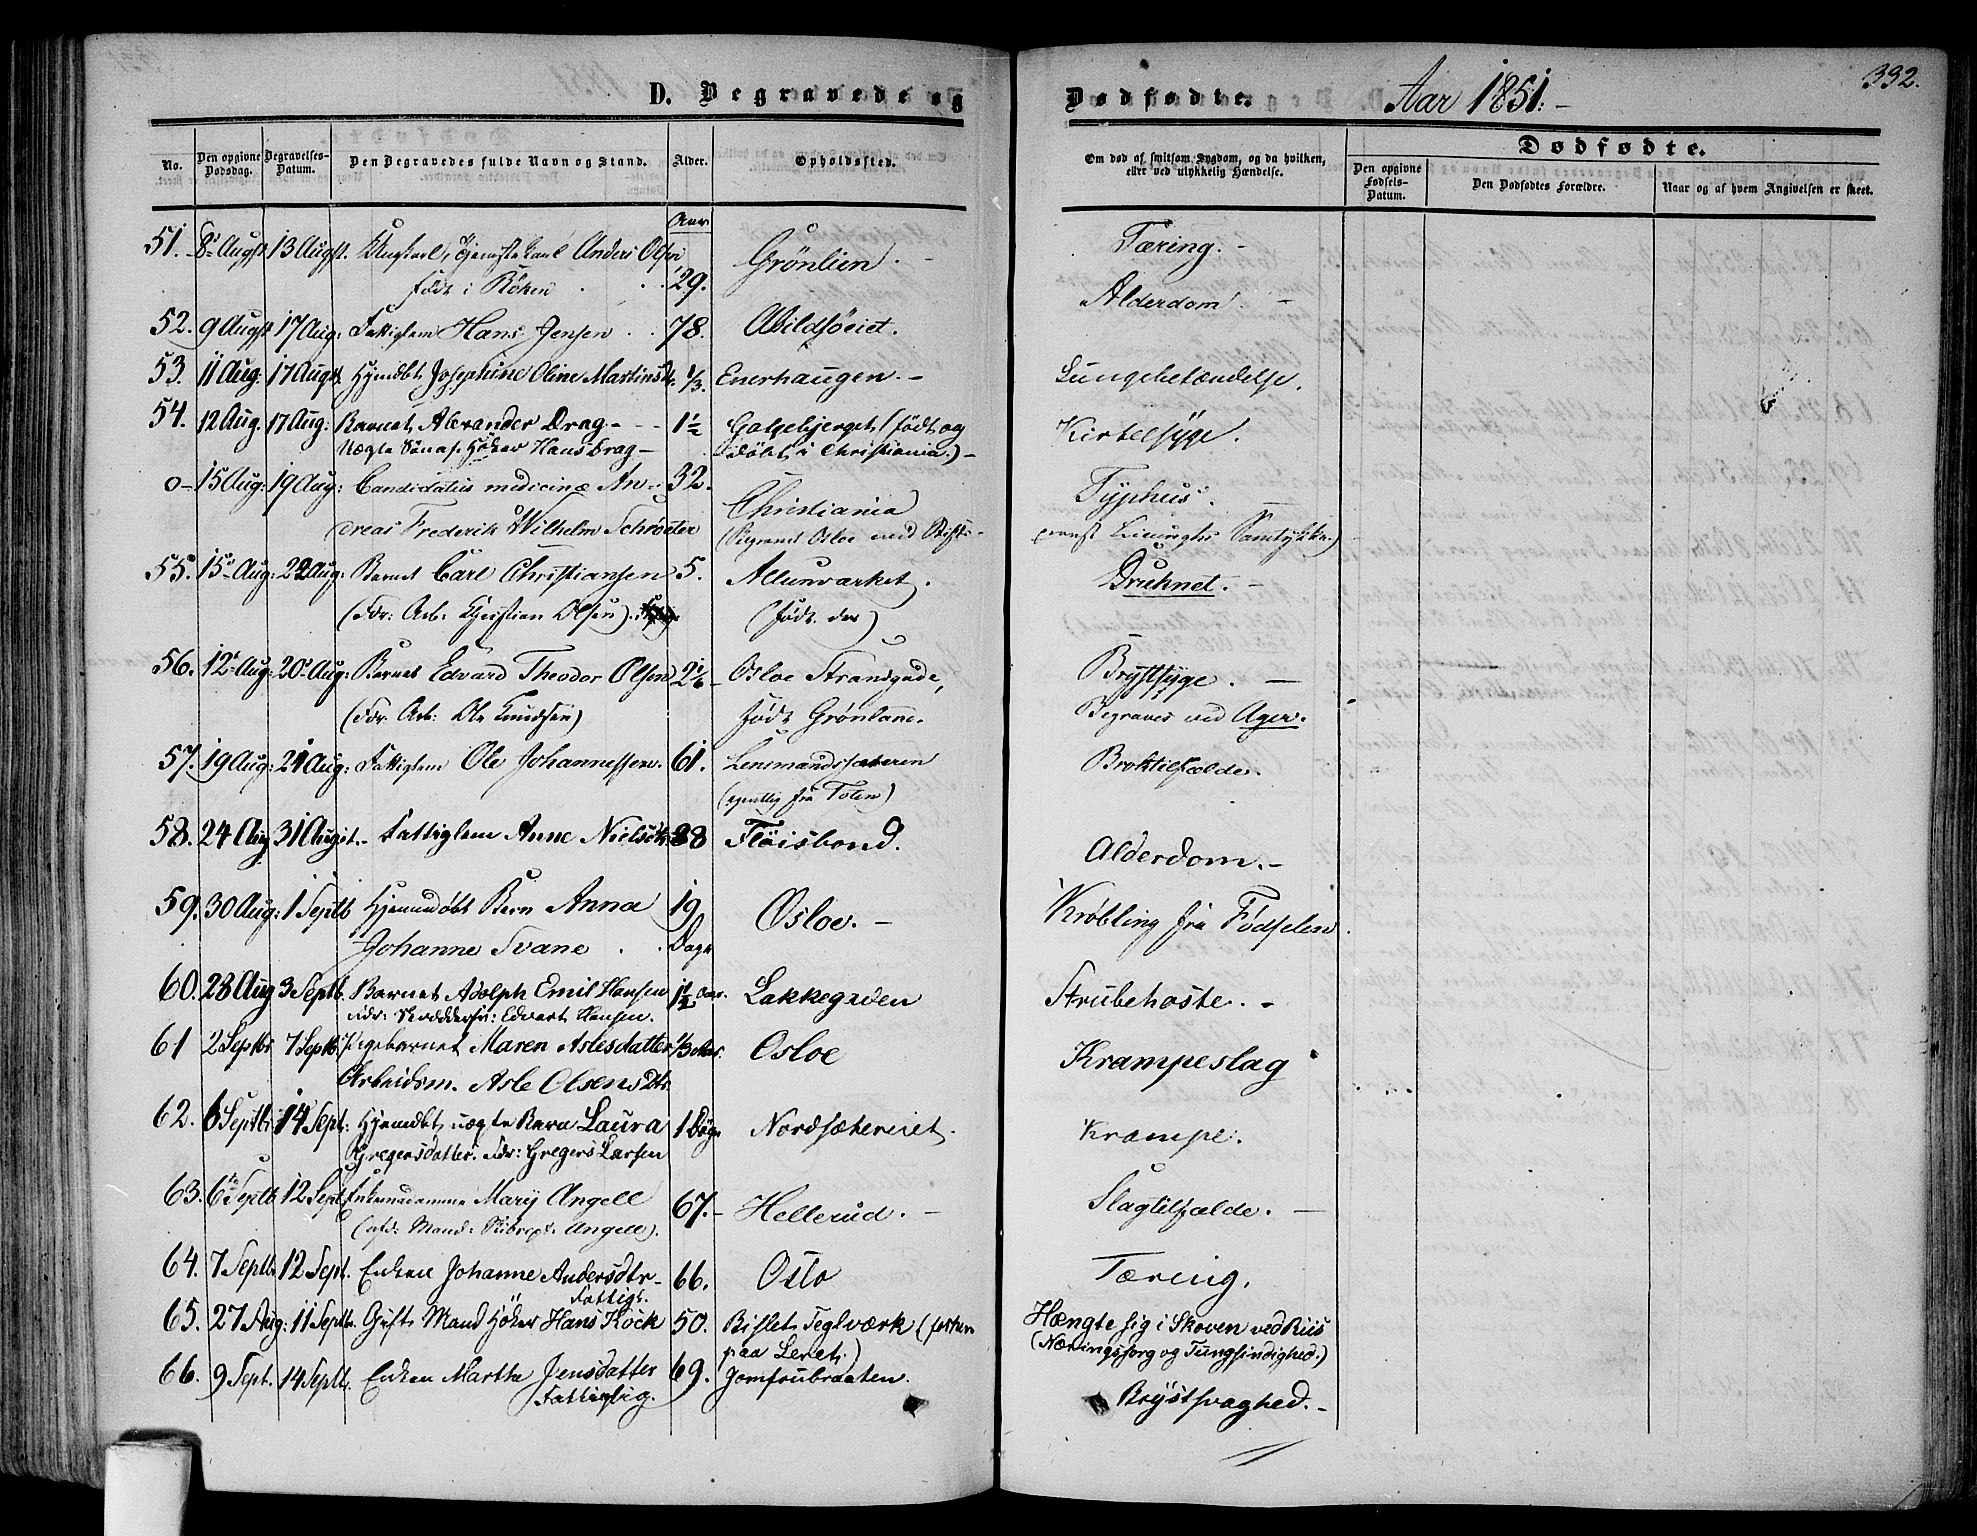 D. Begravede og Dødfødte. Aar 1851.- 332.
No. Den opgivne Dødsdag. Begravelses-Datum. Den Begravedes fulde Navn og Stand. Alder. Opholdssted. Om død af smitsom Sygdom, og da hvilken, eller ved ulykkelig Hændelse. Dødfødte.
Den opgivne Fødsels-Datum. Den Dødfødtes Forældre. Naar og af hvem Angivelsen er skeet.
Aar
51. 8 Augst 13 Augst. Ungkarl, Tjenestekarl Anders Olsen 29. Grönlien. - Tæring. -
født i Röken
52. 9 Augst 17 Aug: Fattiglem Hans Jensen 78. Abildsöeiet. Alderdom. -
53. 11 Aug: 17 Augst Hjemdbt Josephine Oline Martinsdtr 1/3. Enerhaugen. - Lungebetændelse.
54. 12 Aug. 17 Aug: Barnet Alexander Drag - 1½ Galgebjerget (født og Kirtelsyge.
Uægte Søn af Høker Hans Drag - døbt i Christiania.) -
o- 15 Aug: 19 Aug: Candidatus medicinæ An- 32. Christiania Typhus.
dreas Frederik Wilhelm Schrøeter (Begravet Osloe med Stifts-
provst Samtykke.)
55. 15 Aug: 22 Aug: Barnet Carl Christiansen 5. Allunværket. Druknet. -
(Fdr: Arb: Christian Olsen). (født der)
56. 12 Aug: 20 Aug: Barnet Edvard Theodor Olsen 2 1/6 - Osloe Strandgade, Brystsyge. -
(Fdr. Arb: Ole Knudsen) født Grønland. Begraves ved Ager.
57. 19 Aug: 21 Aug: Fattiglem Ole Johannessen. 61. Lensmandssæteren Broktilfælde.
(egentlig fra Toten)
58. 24 Aug 31 Augst. - Fattiglem Anne Nielsdtr 88 Flöisbond. Alderdom. -
59. 30 Aug: 1 Septb Hjemmedøbt Barn Anna 19 Osloe. - Krøbling fra Fødselen.
Johanne Svane Dage
60. 28 Aug 3 Septb. Barnet Adolph Emil Hansen 1½ Aar. Lakkegaden Strubehoste. -
Fdr: Skræddersv: Edvart Hansen.
61 2 Septbr 7 Septb: Pigebarnet Maren Aslesdatter 1/3 Aar. Osloe Krampeslag
Arbeidsm. Asle Olsens Dtr
62. 6 Septbr 14 Sept: Hjemdbt uægte Barn Laura 1 Døgn Nordsæterciet. Krampe.
Gregersdatter. Fdr: Gregers Larsen
63. 6te Septb 12 Septb Enkemadamme Mary Angell 67. - Hellerud. - Slagtilfælde. -
(afd: Mand: Skibscpt. Angell).
64. 7 Septb 12 Sept. Enken Johanne Andersdtr - 66. Oslo Tæring.
Fattigl.
65. 27 Aug: 11 Septb. Gift Mand Høker Hans Kock 50. Bislet Teglværk (før Hængte sig i Skoven ved Riis
paa Leret.) (Næringssorg og Tungsindighed.)
66. 9 Sept. 14 Septb. Enken Marthe Jensdatter 69. Jomfrubraaten. Brystsvaghed. -
Fattiglig.